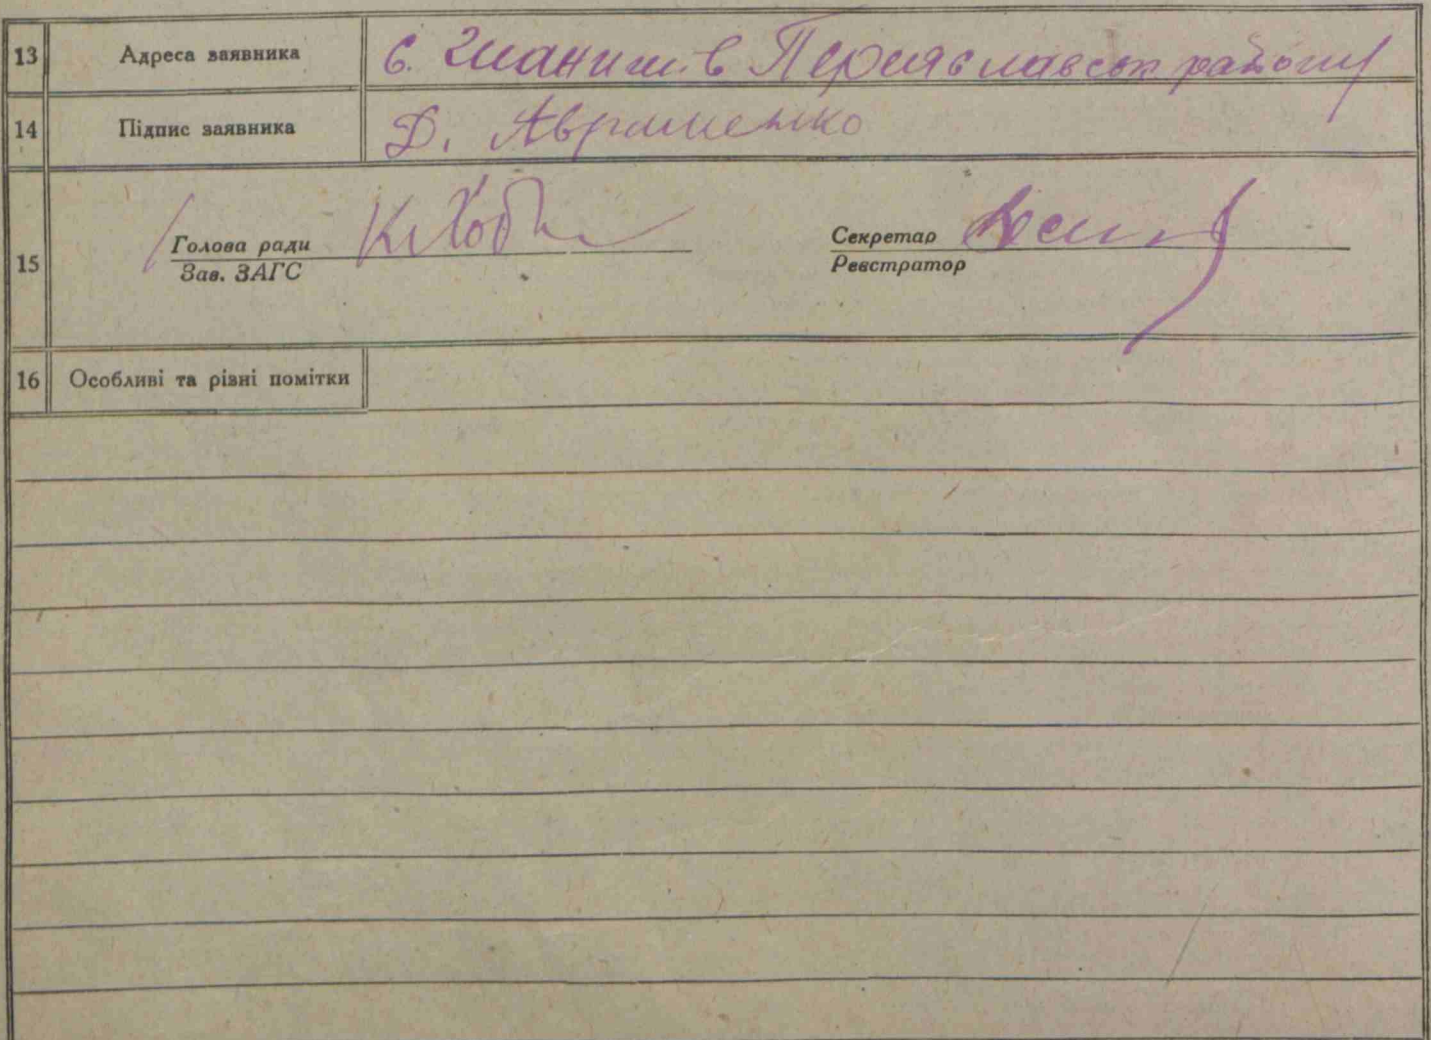 13 Адреса заявника с. Гланишів Переяславськ району
14 Підпис заявника Д. Авраменко
15 Голова ради Секретар
Зав. ЗАГС Реєстратор
16 Особливі та різні помітки